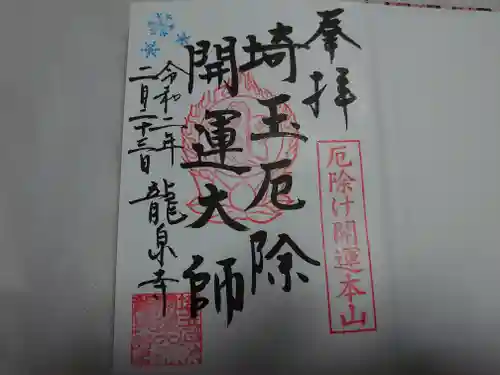 奉拝
厄除け開運本山
埼玉厄除
開運大師
令和二年
二月二十三日
龍泉寺